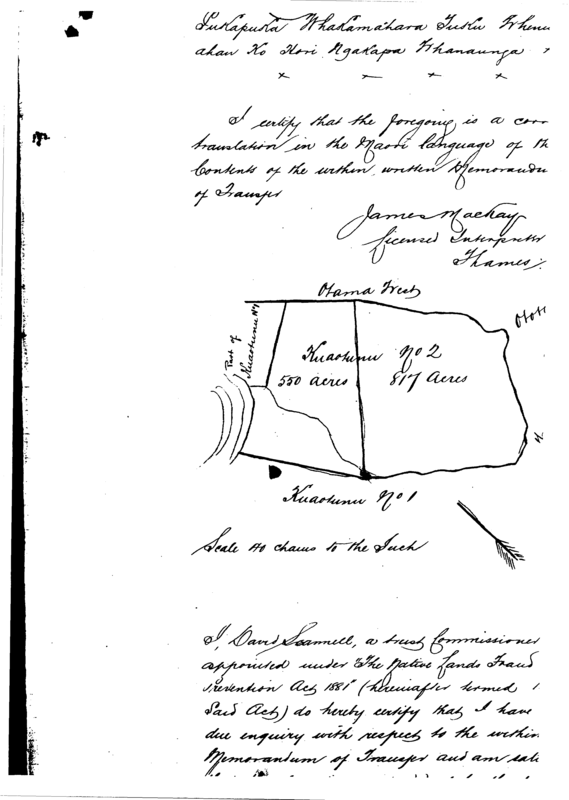 Pukapuka Whakamahara Tuku Whenu
ahau Ko Hori Ngakapa Whanaunga
I certify that the foregoing is a corr
translation in the Maori language of th
Contents of the within written Memorandu
of Transfer
James Mackay
Licensed Interpreter
Thames
Otama West
Otot
Part of
Kuaotunu No 1
Kuaotunu No 2
550 acres
817 Acres
Kuaotunu No 1
Scale 40 chains to the Inch
I, David Scannell, a trust Commissioner
appointed under "The Native Lands Fraud
Prevention Act 1881" (hereinafter termed
Said Act) do hereby certify that I have
due enquiry with respect to the within
Memorandum of Transfer and am sati